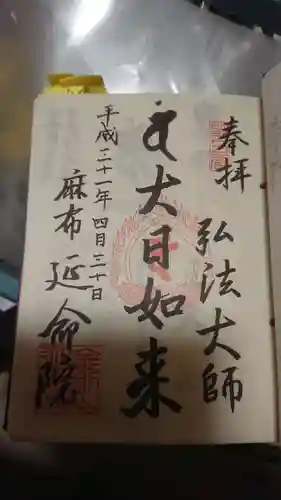 奉拝
弘法大師
大日如来
平成三十一年四月三十日
麻布延命院